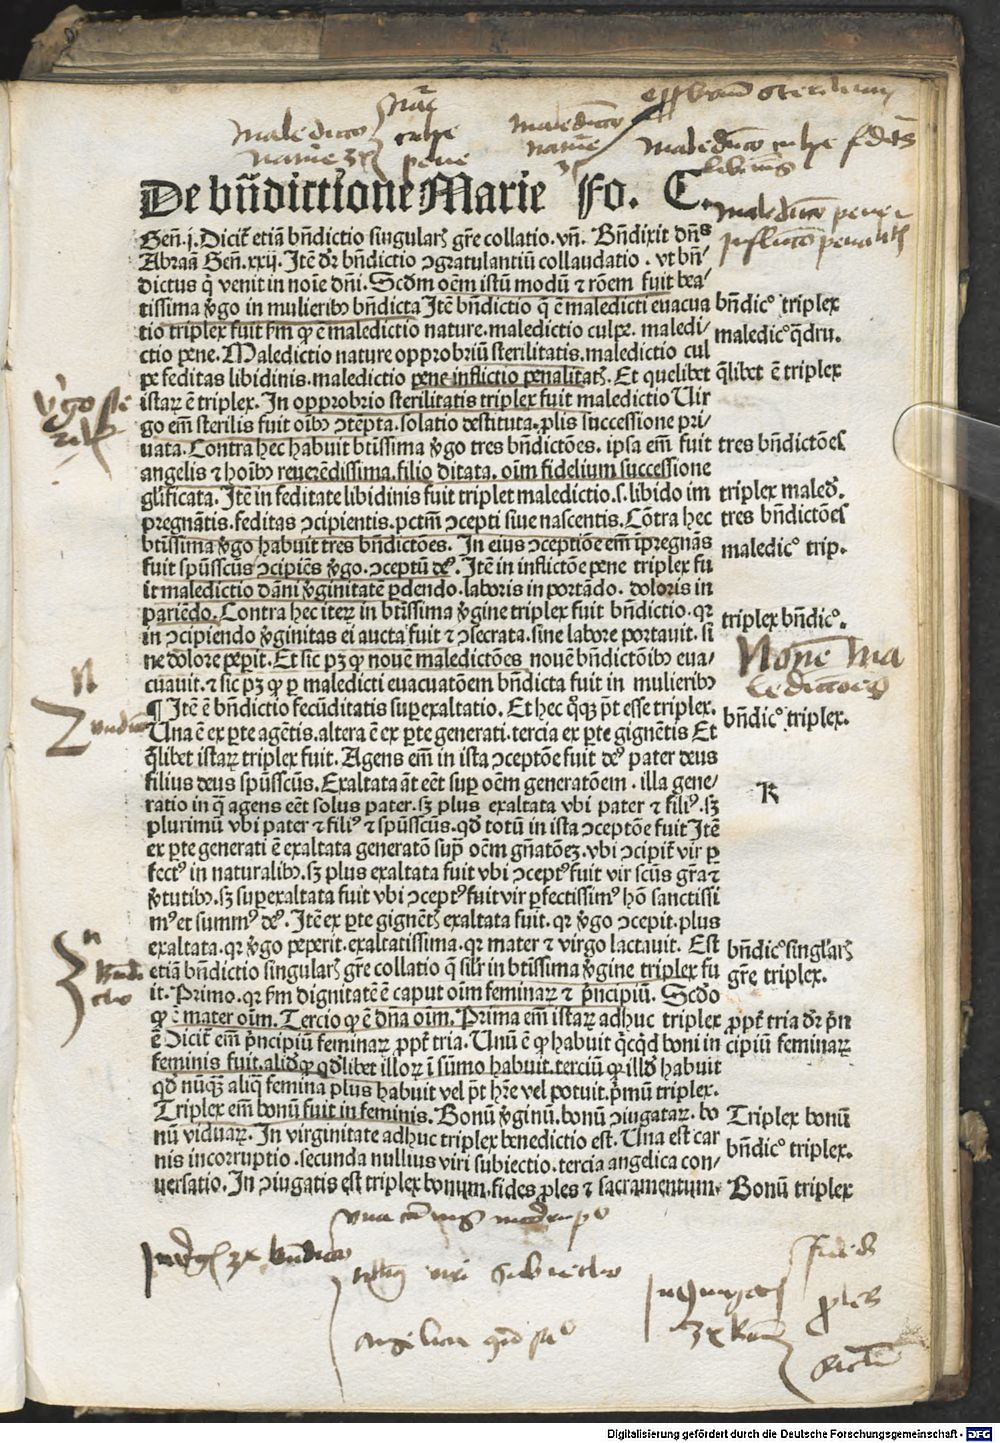 Maledictio
nature 3x
nature
culpe
pene
Maledictio
nature
3x
opprobrium sterilium
Maledictio culpe feditas
libidinis
Maledictio pene
inflictio penalitatis
De bñdictione Marie Fo. C.
Geñ.j. Dicit̃ etiã bñdictio singularꝭ gr̃e collatio. vñ. Bñdixit dñs
Abraã Geñ.xxij. Itẽ dr̃ bñdictio ↄgratulantiũ collaudatio. vt bñ⸗
dictus q̇ venit in noĩe dñi. Scd̃m oẽm istũ modũ ⁊ rõem fuit bea⸗
tissima ꝟgo in mulieribꝰ bñdicta Itẽ bñdictio q̃ ẽ maledicti euacua
tio triplex fuit ẜm ꝙ ẽ maledictio nature. maledictio culpe. maledi⸗
ctio pene. Maledictio nature opprobriũ sterilitatis. maledictio cul
pe feditas libidinis. maledictio pene inflictio penalitatꝭ. Et quelibet
istaꝝ ẽ triplex. In opprobrio sterilitatis triplex fuit maledictio Uir
go em̃ sterilis fuit oĩbꝰ ↄtẽpta. solatio destituta. ꝓlis successione pri⸗
uata. Contra hec habuit btĩssima ꝟgo tres bñdictões. ipsa em̃ fuit
angelis ⁊ hoĩbꝰ reuerẽdissima. filio ditata. oĩm fidelium successione
glĩficata. Itẽ in feditate libidinis fuit triplet maledictio. s. libido im
pregnãtis. feditas ↄcipientis. pctm̃ ↄcepti siue nascentis. Cõtra hec
btĩssima ꝟgo habuit tres bñdictões. In eius ↄceptiõe em̃ ĩpregnãs
fuit spũsscũs ↄcipiẽs ꝟgo. ↄceptũ deꝰ. Itẽ in inflictõe pene triplex fu
it maledictio dãni ꝟginitatẽ ꝑdendo. laboris in portãdo. doloris in
pariẽdo. Contra hec iteꝝ in btĩssima ꝟgine triplex fuit bñdictio. qꝛ
in ↄcipiendo ꝟginitas ei aucta fuit ⁊ ↄsecrata. sine labore portauit. si
ne dolore peꝑit. Et sic pꝫ ꝙ nouẽ maledictões nouẽ bñdictõibꝰ eua⸗
cuauit. ⁊ sic pꝫ ꝙ ꝑ maledicti euacuatõem bñdicta fuit in mulieribꝰ
¶ Itẽ ẽ bñdictio fecũditatis suꝑexaltatio. Et hec q̃qꝫ p̃t esse triplex.
Una ẽ ex ꝑte agẽtis. altera ẽ ex ꝑte generati. tercia ex ꝑte gignẽtis Et
q̃libet istaꝝ triplex fuit. Agens em̃ in ista ↄceptõe fuit deꝰ pater deus
filius deus spũsscũs. Exaltata ãt eẽt suꝑ oẽm generatõem. illa gene⸗
ratio in q̃ agens eẽt solus pater. sꝫ plus exaltata vbi pater ⁊ filiꝰ. sꝫ
plurimũ vbi pater ⁊ filiꝰ ⁊ spũsscũs. qd̃ totũ in ista ↄceptõe fuit Itẽ
ex ꝑte generati ẽ exaltata generatõ suꝑ oẽm gñatõeꝫ. vbi ↄcipit̃ vir ꝑ
fectꝰ in naturalibꝰ. sꝫ plus exaltata fuit vbi ↄceptꝰ fuit vir scũs gr̃a ⁊
ꝟtutibꝰ. sꝫ suꝑexaltata fuit vbi ↄceptꝰ fuit vir ꝑfectissimꝰ hõ sanctissi
mꝰ et summꝰ deꝰ. Itẽ ex ꝑte gignẽtꝭ exaltata fuit. qꝛ ꝟgo ↄcepit. plus
exaltata. qꝛ ꝟgo peꝑit. exaltatissima. qꝛ mater ⁊ virgo lactauit. Est
etiã bñdictio singularꝭ gr̃e collatio q̃ silr̃ in btĩssima ꝟgine triplex fu
it. Primo. qꝛ ẜm dignitatẽ ẽ caput oĩm feminaꝝ ⁊ pⁱncipiũ. Scd̃o
ꝙ ẽ mater oĩm. Tercio ꝙ ẽ dña oĩm. Prima em̃ istaꝝ adhuc triplex
ẽ Dicit̃ em̃ pⁱncipiũ feminaꝝ ꝓpt̃ tria. Unũ ẽ ꝙ habuit q̇cq̇d boni in
feminis fuit. aliḋ ꝙ qḋlibet illoꝝ ĩ sũmo habuit. terciũ ꝙ illḋ habuit
qḋ nũqꝫ aliq̃ femina plus habuit vel p̃t hr̃e vel potuit. pⁱmũ triplex.
Triplex em̃ bonũ fuit in feminis. Bonũ ꝟginũ. bonũ ↄiugataꝝ. bo
nũ viduaꝝ. In virginitate adhuc triplex benedictio est. Una est car
nis incorruptio. secunda nullius viri subiectio. tercia angelica con⸗
uersatio. In ↄiugatis est triplex bonum. fides ꝓles ⁊ sacramentum.
bñdicᵒ triplex
maledicᵒ q̃dru.
q̃libet ẽ triplex
tres bñdictões
triplex maled̃.
tres bñdictões
maledicᵒ trip.
triplex bñdicᵒ.
None ma
ledictões
bñdicᵒ triplex.
K
bñdicᵒ singl'arꝭ
gr̃e triplex.
ꝓpt̃ tria dr̃ pⁱn
cipiũ feminaꝝ
Triplex bonũ
bñdicᵒ triplex.
Bonũ triplex
ꝟgo ste
rilis
N
N
bñdi
ctio
una carnis incorrupᵒ
In ꝟgĩ 3x bñdictio
nullius viri subiectio
Angelica
In ↄiugatꝭ
3x bonũ
fides
ꝓles